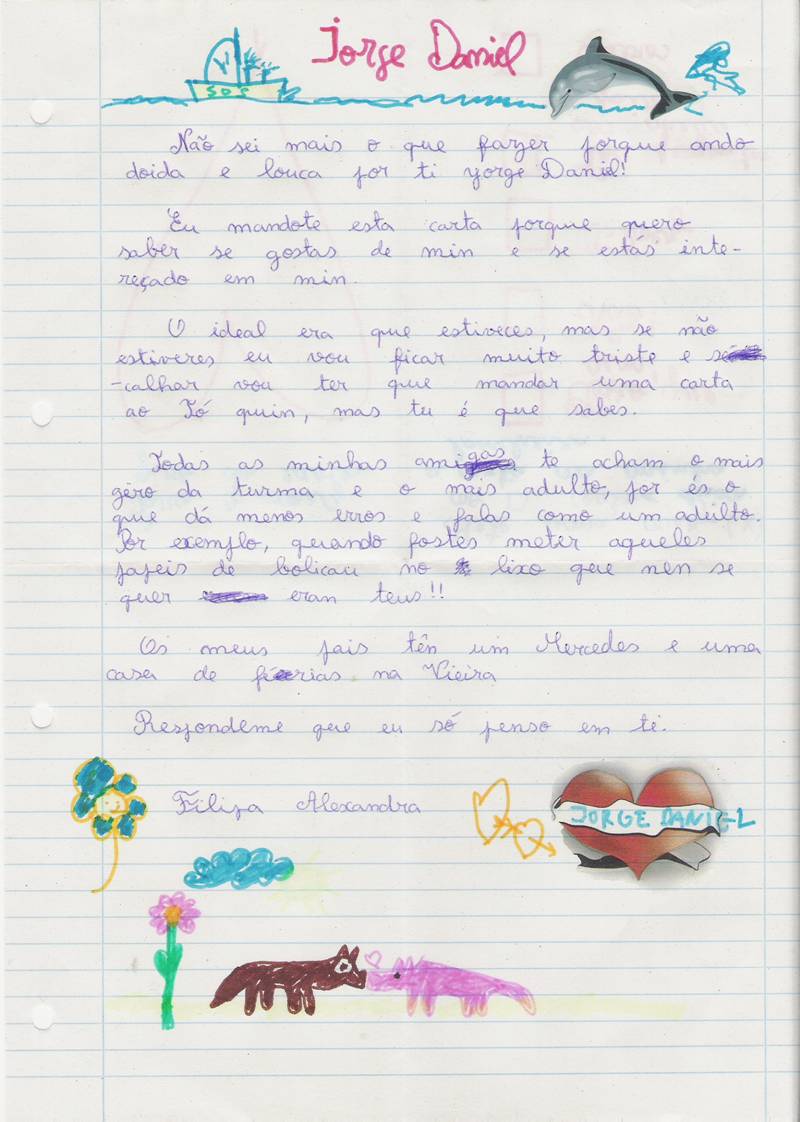 Jorge Daniel
SOS
Não sei mais o que fazer porque ando
doida e louca por ti yorge Daniel!
Eu mandote esta carta porque quero
saber se gostas de min e se estás inte-
reçado em min.
O ideal era que estiveces, mas se não
estiveres eu vou ficar muito triste e se
-calhar vou ter que mandar uma carta
ao Tó quin, mas tu é que sabes.
Todas as minhas amigas te acham o mais
gëro da turma e o mais adulto, por és o
que dá menos erros e falas como um adulto.
Por exemplo, quando fostes meter aqueles
papeis de bolicau no lixo que nen se
quer eran teus!!
Os meus pais tên um Mercedes e uma
casa de férias na Vieira
Respondeme que eu só penso em ti.
Filipa Alexandra
JORGE DANIEL